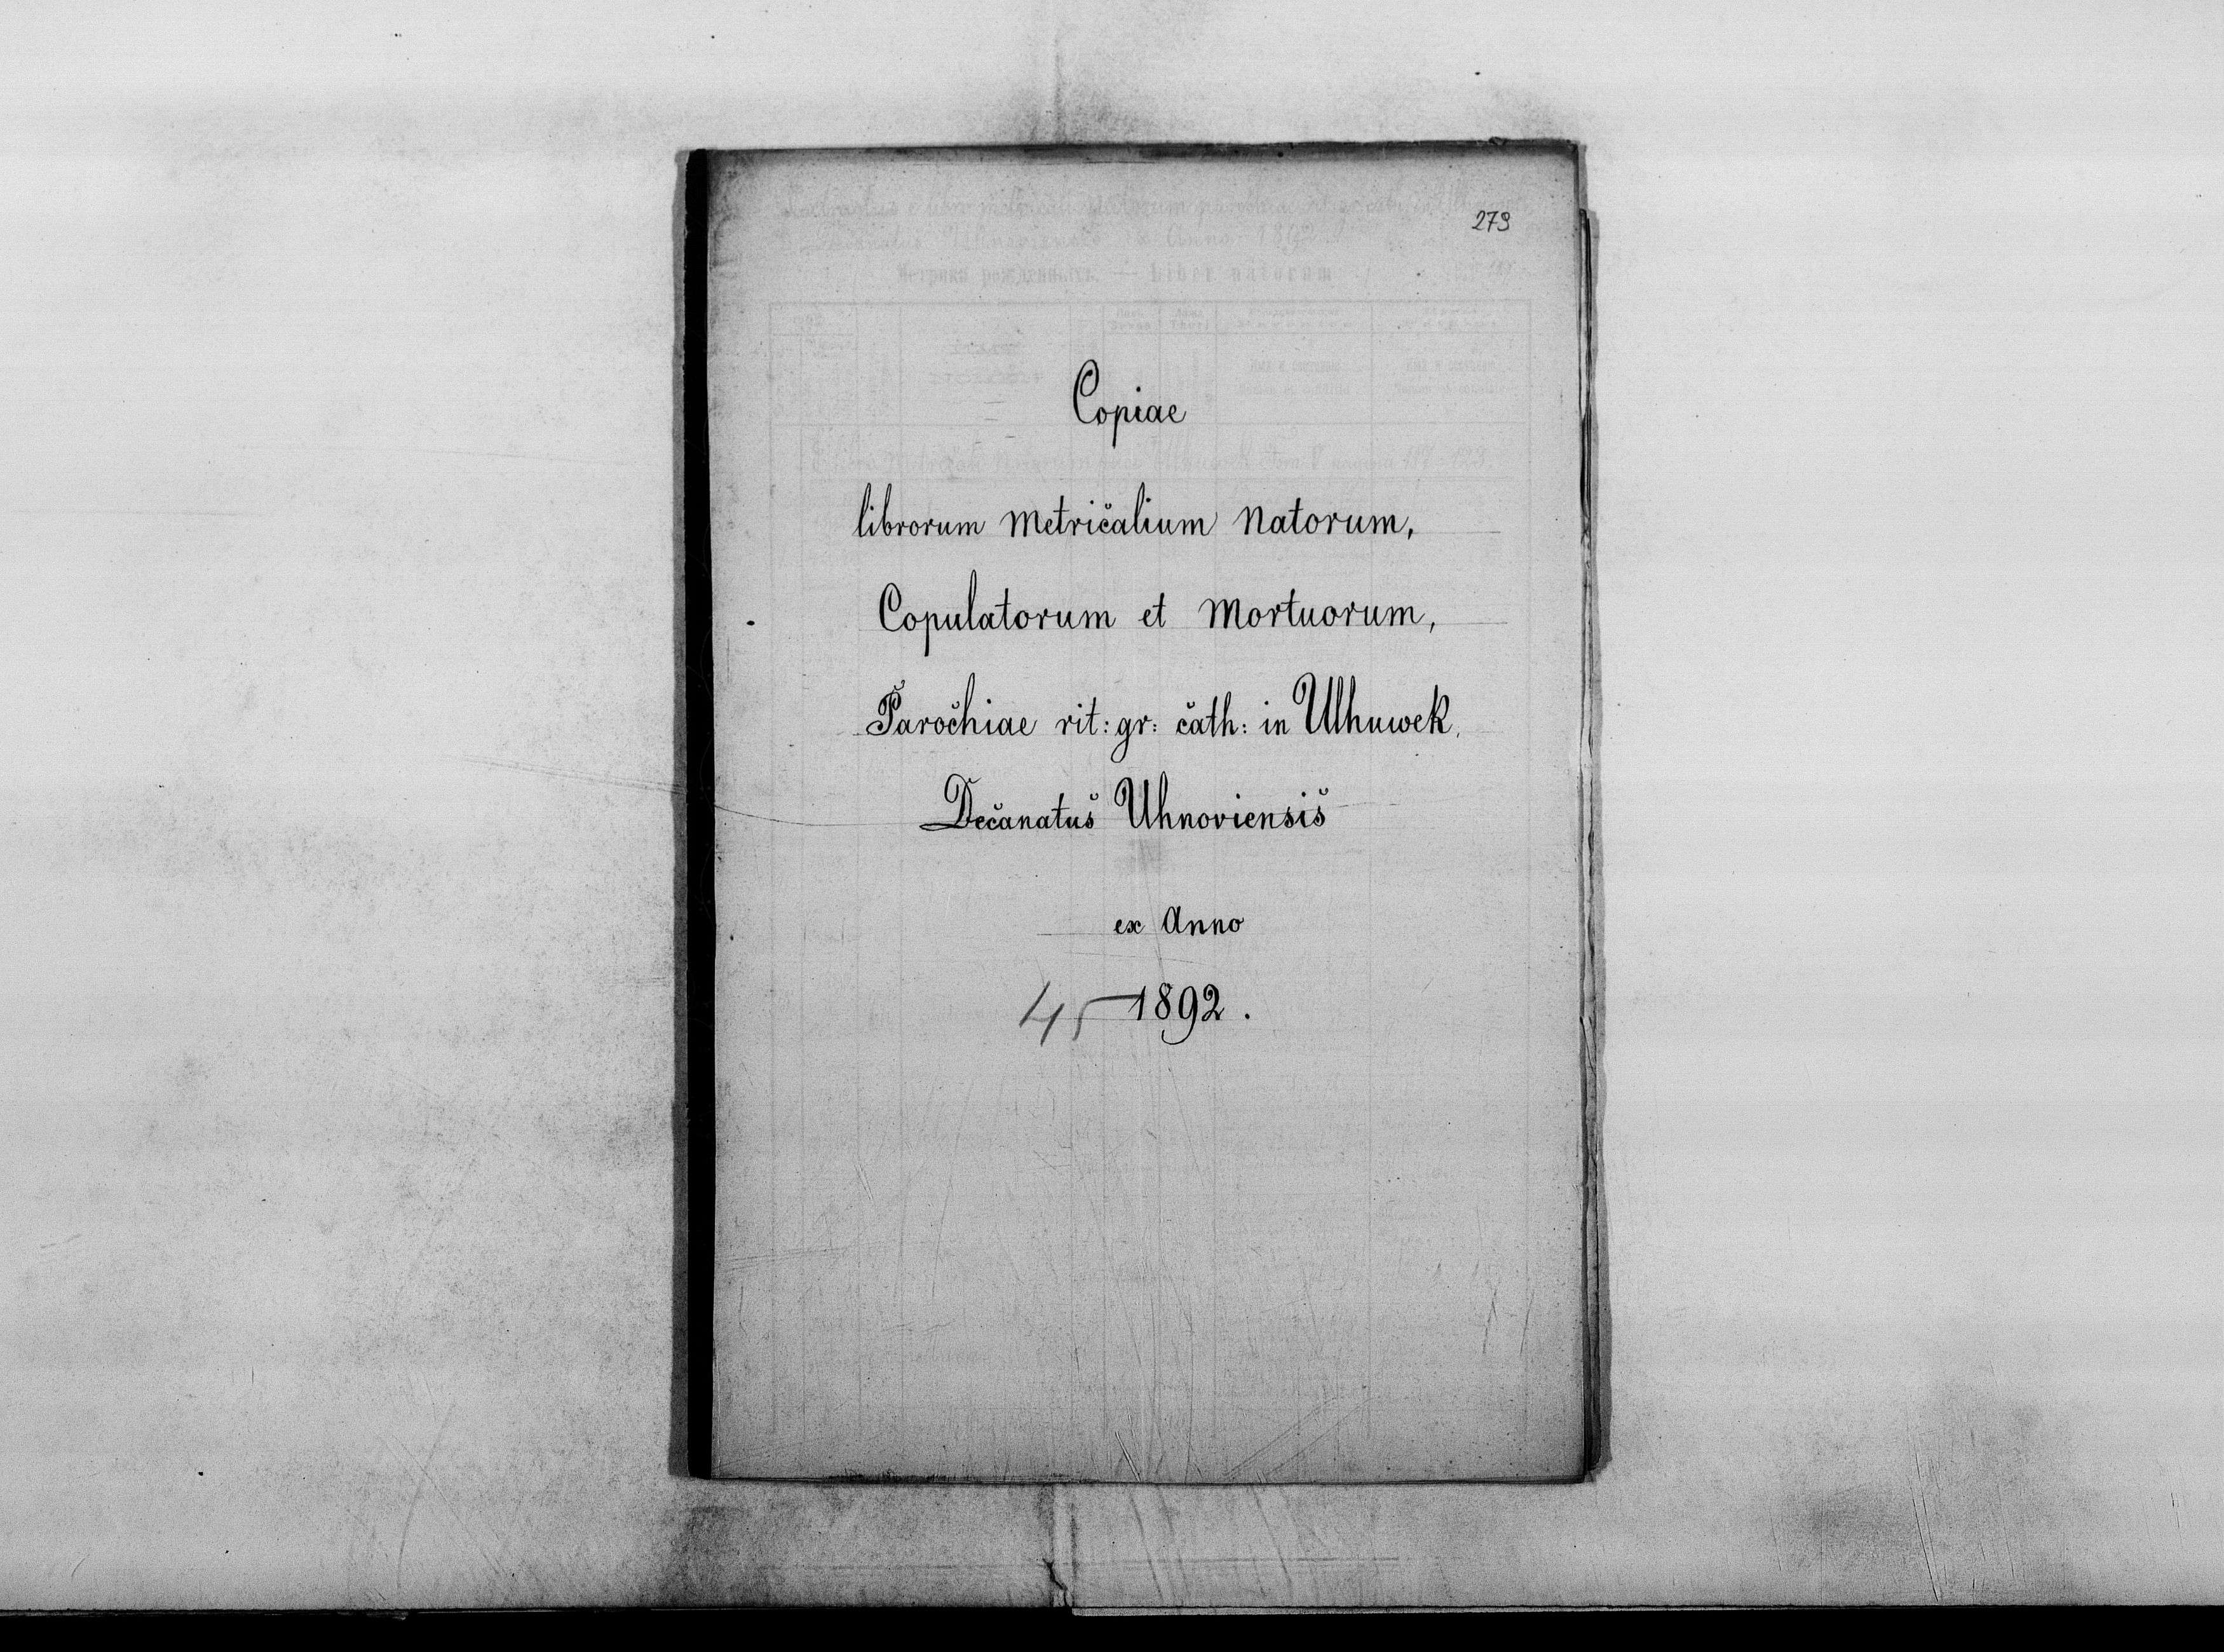 273
Copiae
librorum metričalium Natorum,
Copulatorum et Mortuorum,
Paročhiae rit: gr: čath: in Ulhuwek.
Dečanatuš Uhnoviensiš
ex Anno
45 1892.